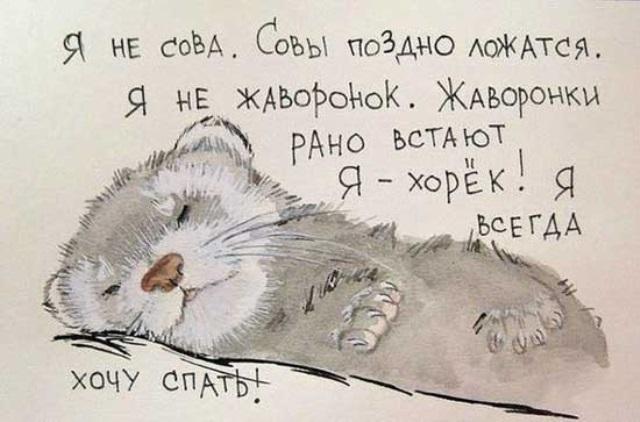 Я НЕ СОВА. СОВЫ ПОЗДНО ЛОЖАТСЯ.
Я НЕ ЖАВОРОНОК. ЖАВОРОНКИ
РАНО ВСТАЮТ
Я - ХОРЁК! Я
ВСЕГДА
ХОЧУ СПАТЬ!